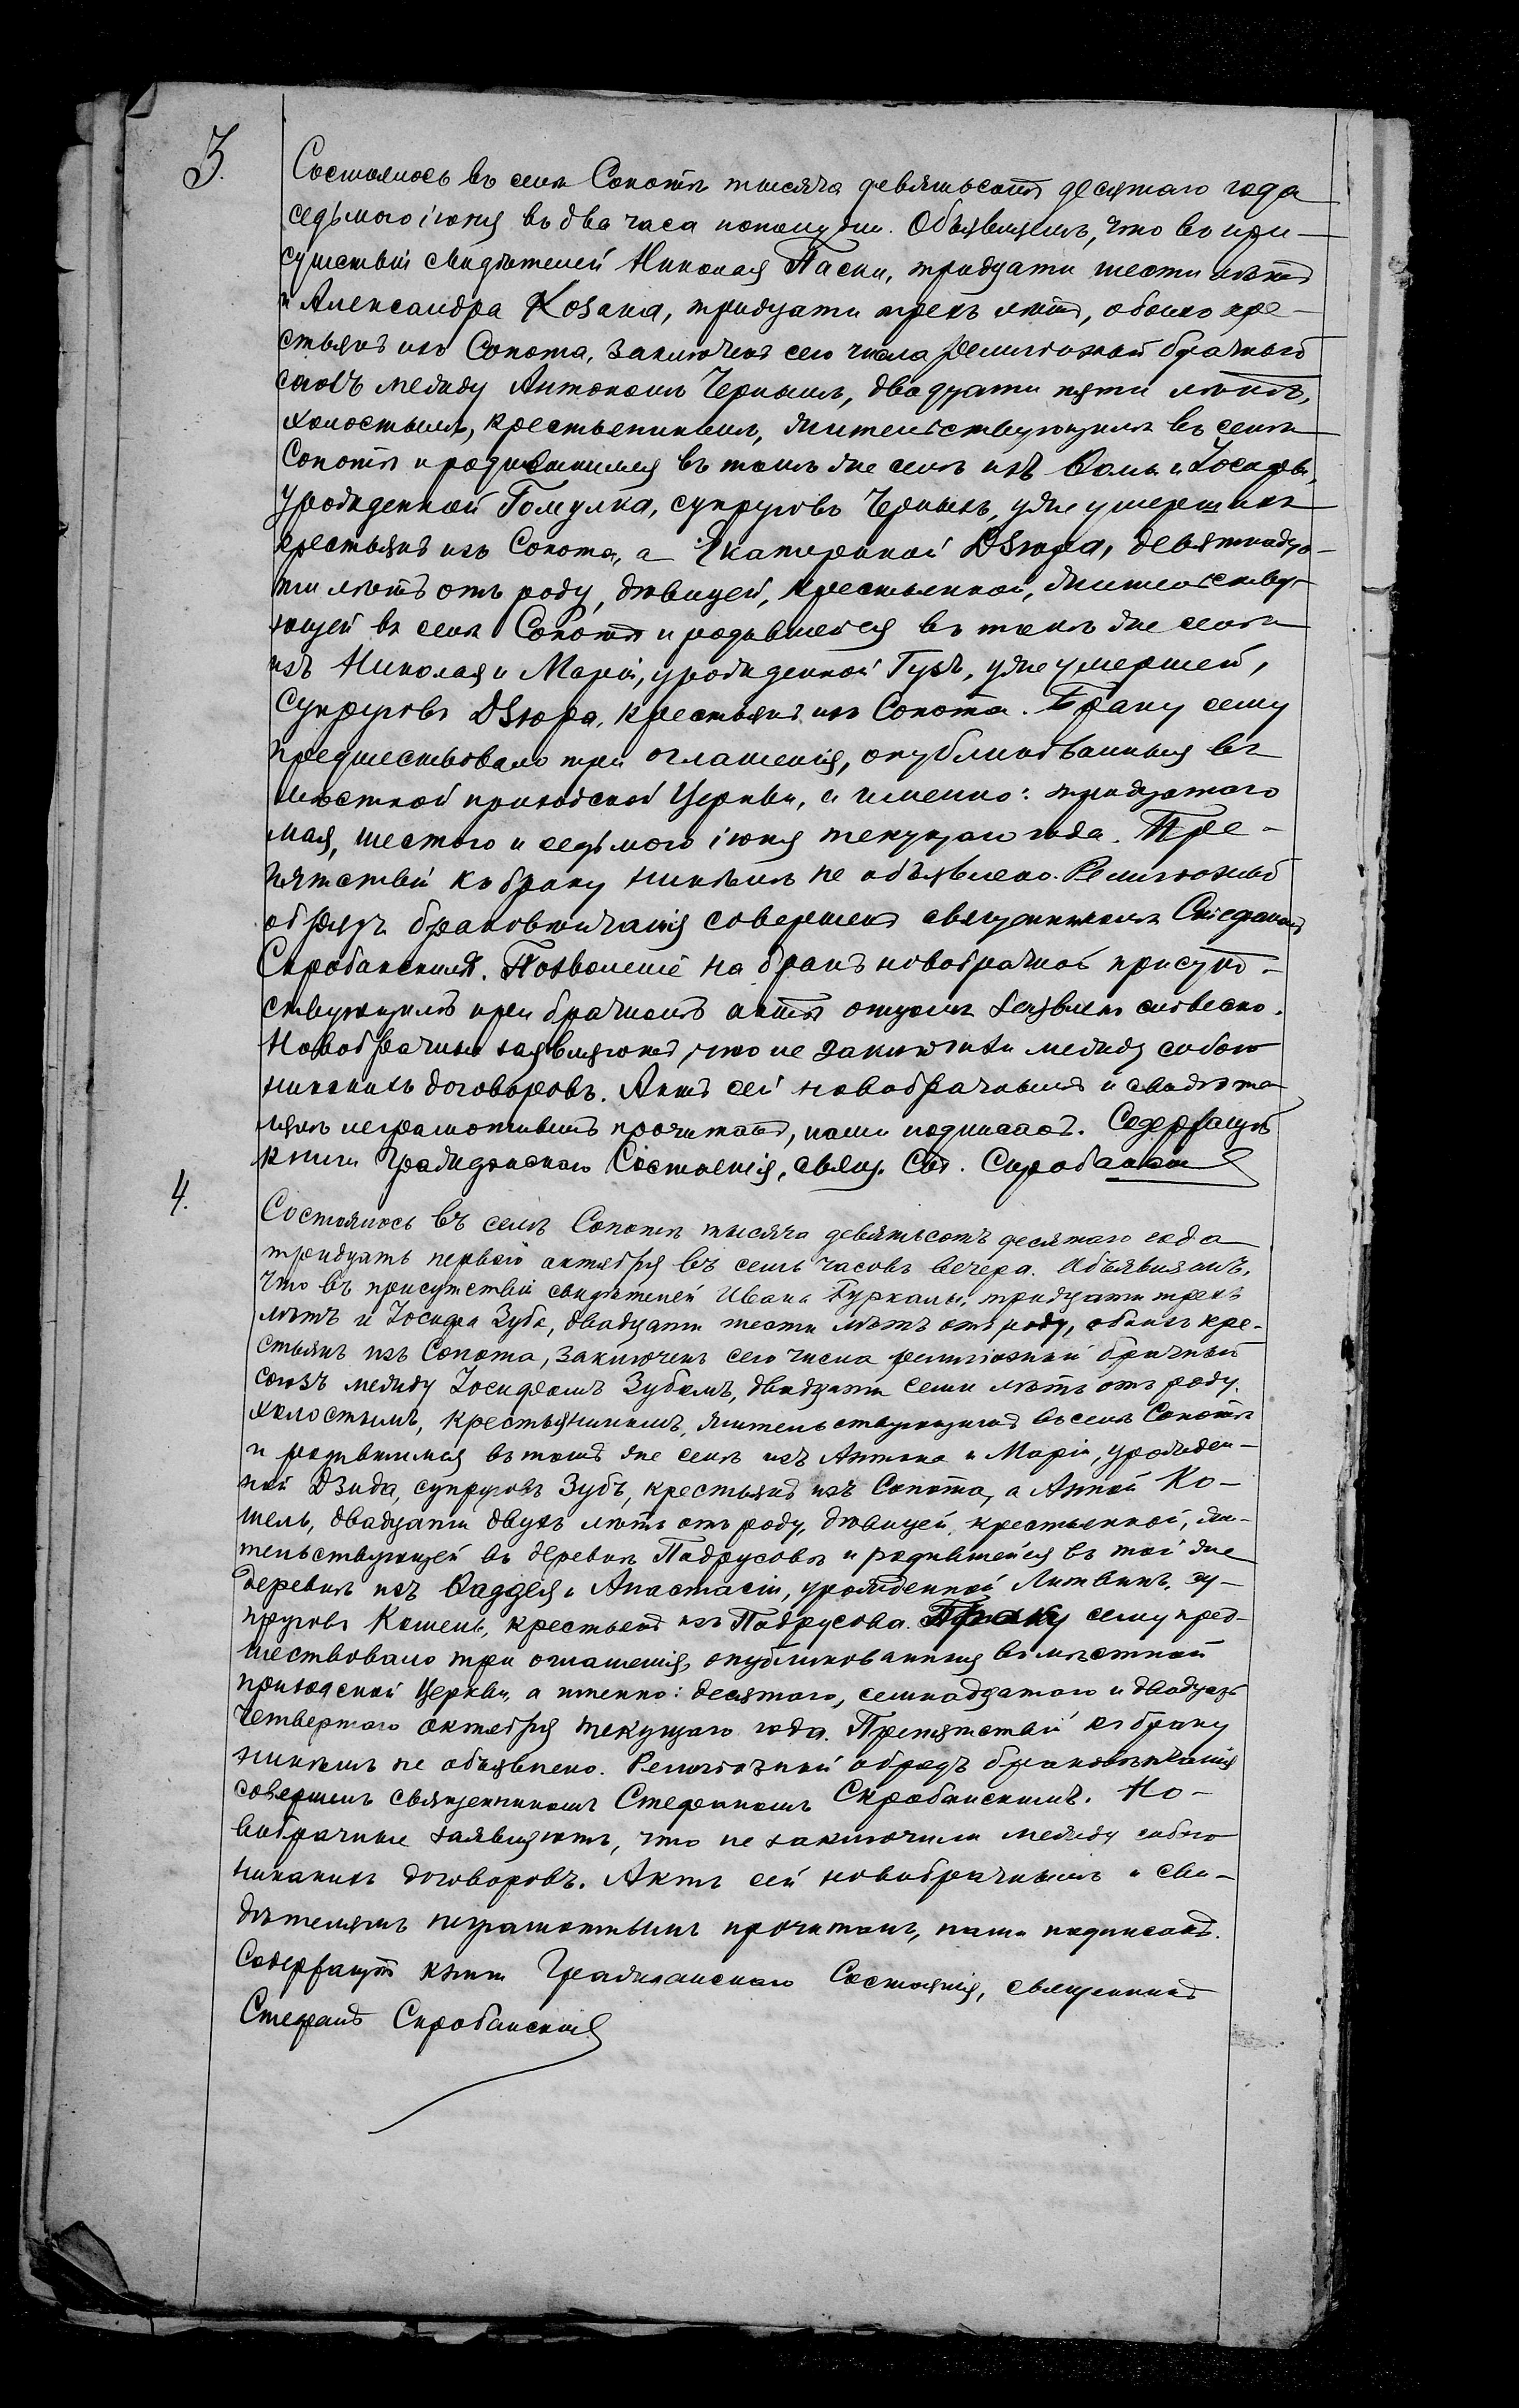 3.
Состоялось въ селѣ Сопотѣ тысяча девятьсотъ десятаго года
седьмого іюня въ два часа пополудни. Объявляемъ, что въ при-
сутствіи свидѣтелей Николая Паски, тридцати шести лѣтъ
и Александра Козака, тридцати трехъ лѣтъ, обоихъ кре-
стьянъ изъ Сопота, заключенъ сего числа религіозный брачный
союзъ между Антономъ Чернымъ, двадцати пяти лѣтъ,
холостымъ, крестьяниномъ, жительствующимъ въ селѣ
Сопотѣ и родившимся въ томъ же селѣ изъ Ѳомы и Іосифы,
урожденной Гомулка, супруговъ Черныхъ, уже умершихъ
крестьянъ изъ Сопота, а Екатериной Дзюра, девятнадца-
ти лѣтъ отъ роду, дѣвицей, крестьянкой, жительству-
ющей въ селѣ Сопотѣ и родившейся въ томъ же селѣ
изъ Николая и Маріи, урожденной Гузъ, уже умершей,
супруговъ Дзюра, крестьянъ изъ Сопота. Браку сему
предшествовало три оглашенія, опубликованныя въ
мѣстной приходской церкви, а именно: тридцатого
мая, шестого и седьмого іюня текущаго года. Пре-
пятствій къ браку никѣмъ не объявлено. Религіозный
обрядъ браковѣнчанія совершенъ священникомъ Стефаномъ
Скробанскимъ. Позволеніе на бракъ новобрачной присут-
ствующимъ при брачномъ актѣ отцомъ заявлено словесно.
Новобрачные заявляютъ, что не заключили между собою
никакихъ договоровъ. Актъ сей новобрачнымъ и свидѣте-
лямъ неграмотнымъ прочитанъ, нами подписанъ. Содержащій
книги Гражданскаго Состоянія, свящ. Ст. Скробанскій
4.
Состоялось въ селѣ Сопотѣ тысяча девятьсотъ десятаго года
тридцать перваго октября въ семь часовъ вечера. Объявляемъ,
что въ присутствіи свидѣтелей Ивана Буркалы, тридцати трехъ
лѣтъ и Іосифа Зуба, двадцати шести лѣтъ отъ роду, обоихъ кре-
стьянъ изъ Сопота, заключенъ сего числа религіозный брачный
союзъ между Іосифомъ Зубомъ, двадцати семи лѣтъ отъ роду,
холостымъ, крестьяниномъ, жительствующимъ въ селѣ Сопотѣ
и родившимся въ томъ же селѣ изъ Антона и Маріи, урожден-
ной Дзида, супруговъ Зубъ, крестьянъ изъ Сопота, а Анной Ко-
шель, двадцати двухъ лѣтъ отъ роду, дѣвицей, крестьянкой, жи-
тельствующей въ деревнѣ Падрусовѣ и родившейся въ той же
деревнѣ изъ Ѳаддея и Анастасіи, урожденной Литвинъ, су-
пруговъ Кошель, крестьянъ изъ Падрусова. Браку сему пред-
шествовало три оглашенія, опубликованныя въ мѣстной
приходской церкви, а именно: десятаго, семнадцатаго и двадцать
четвертаго октября текущаго года. Препятствій къ браку
никѣмъ не объявлено. Религіозный обрядъ браковѣнчанія
совершенъ священникомъ Стефаномъ Скробанскимъ. Но-
вобрачные заявляютъ, что не заключили между собою
никакихъ договоровъ. Актъ сей новобрачнымъ и сви-
дѣтелямъ неграмотнымъ прочитанъ, нами подписанъ.
Содержащій книги Гражданскаго Состоянія, священникъ
Стефанъ Скробанскій